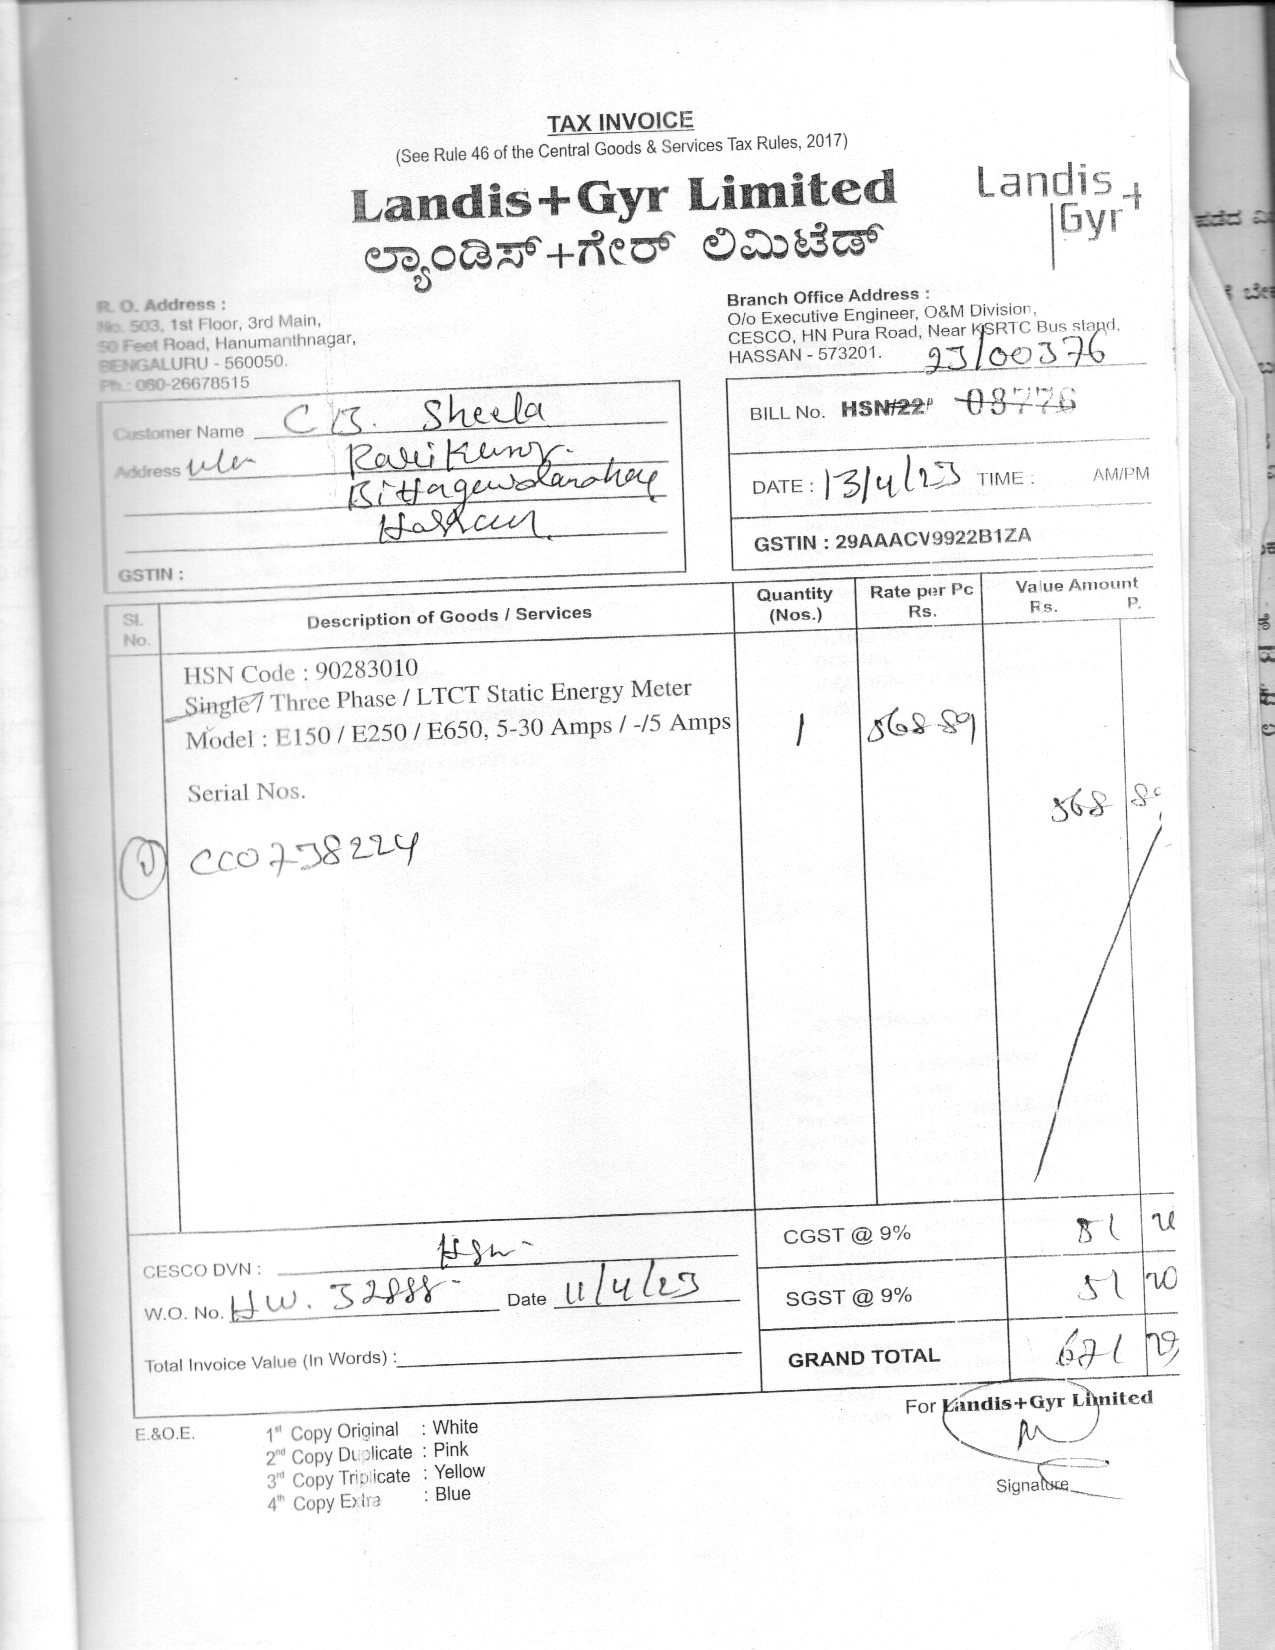 TAX INVOICE
(See Rule 46 of the Central Goods & Services Tax Rules, 2017)
Landis+Gyr Limited
ಲ್ಯಾಂಡಿಸ್+ಗೇರ್ ಲಿಮಿಟೆಡ್
Landis
Gyr+
R. O. Address :
No. 503, 1st Floor, 3rd Main,
50 Feet Road, Hanumanthnagar,
BENGALURU - 560050.
Ph.: 080-26678515
Branch Office Address :
O/o Executive Engineer, O&M Division,
CESCO, HN Pura Road, Near KSRTC Bus stand,
HASSAN - 573201.
23/00376
Customer Name C B. Sheela
Address Ravi Kumar
Hassan
GSTIN :
BILL No. HSN/22 08776
DATE : 13/4/23 TIME : AM/PM
GSTIN : 29AAACV9922B1ZA
Sl. No. Description of Goods / Services Quantity (Nos.) Rate per Pc Rs. Value Amount Rs. P.
HSN Code : 90283010
Single / Three Phase / LTCT Static Energy Meter
Model : E150 / E250 / E650, 5-30 Amps / -/5 Amps 1 568 89
Serial Nos.
568 89
1) CC0738224
CGST @ 9% 51 20
CESCO DVN : Hsn
W.O. No. HW. 32888 Date 11/4/23
SGST @ 9% 51 20
Total Invoice Value (In Words) :
GRAND TOTAL 671 29
For Landis+Gyr Limited
E.&O.E.
1st Copy Original : White
2nd Copy Duplicate : Pink
3rd Copy Triplicate : Yellow
4th Copy Extra : Blue
Signature